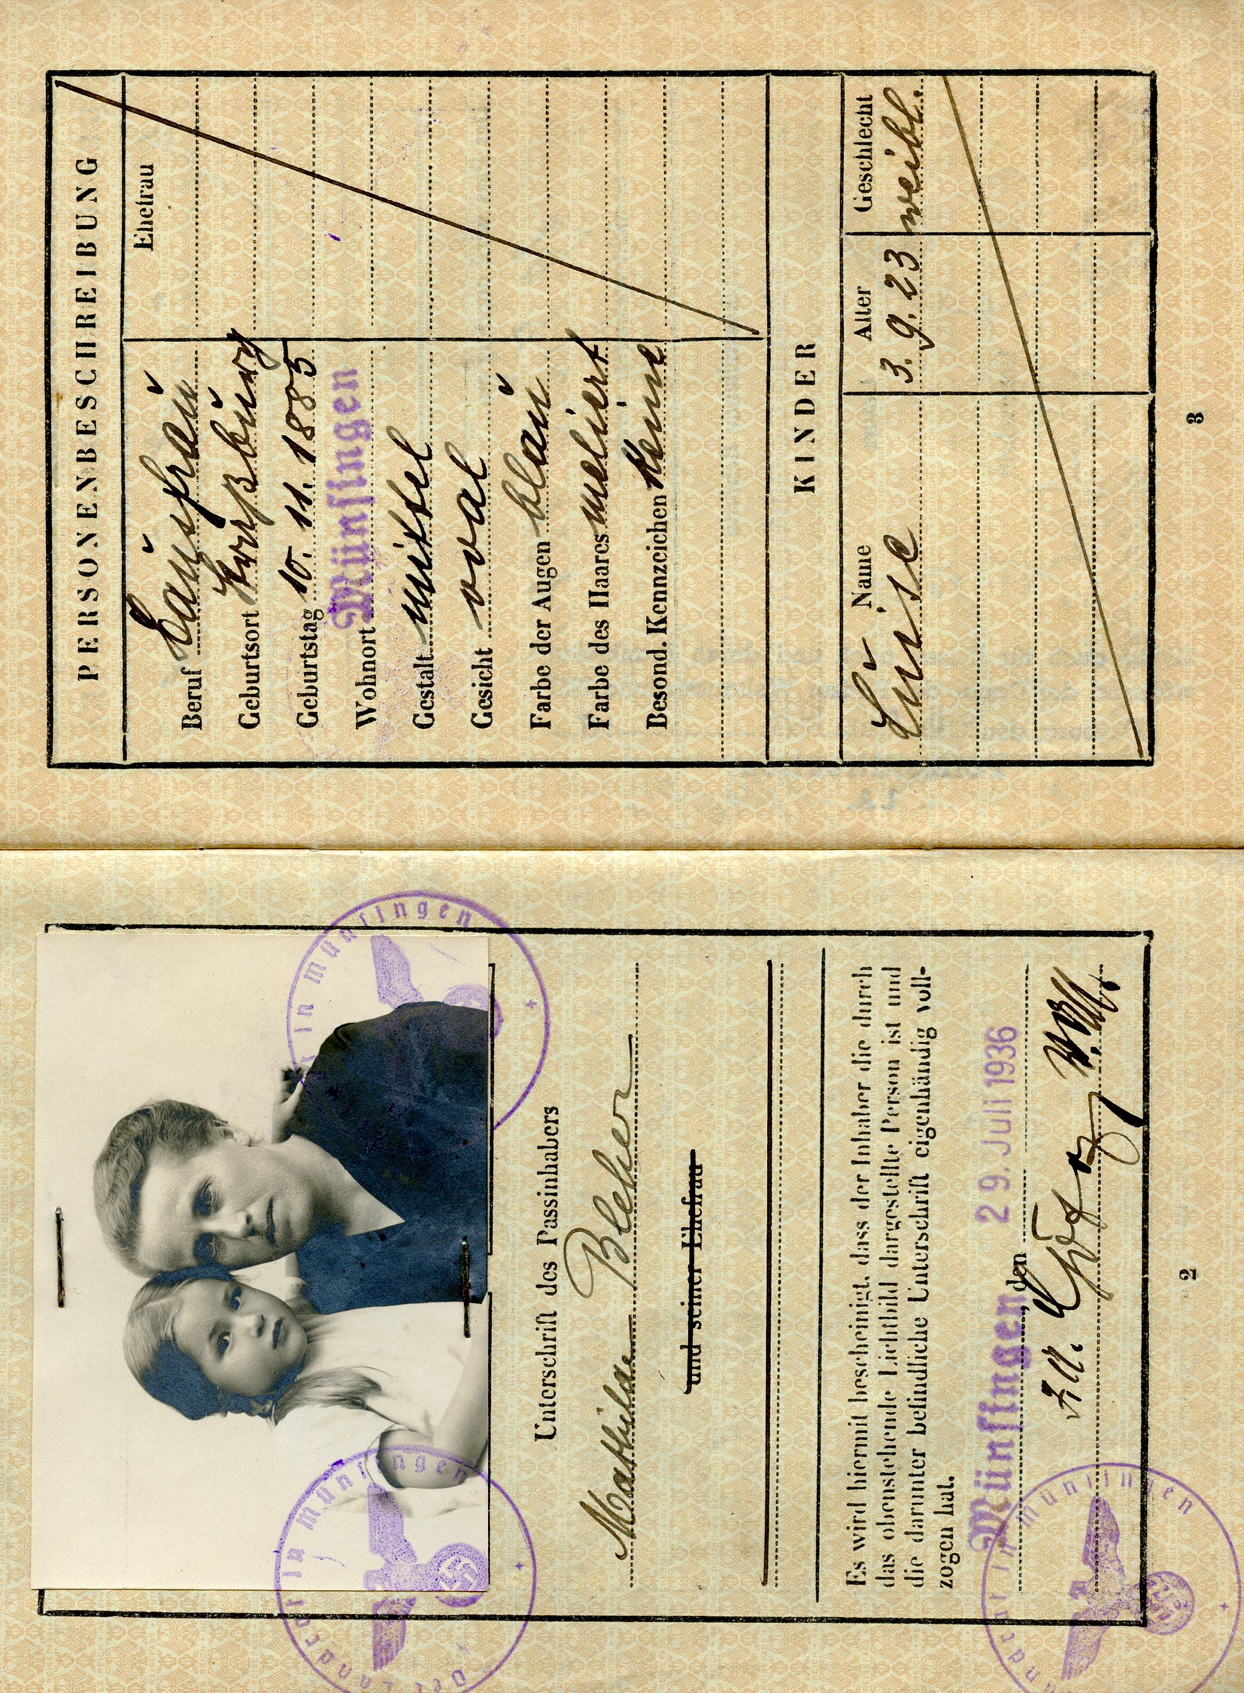 Der Landrat in Münsingen
Münsingen
Unterschrift des Passinhabers
Mathilde Bleher
und seiner Ehefrau
Es wird hiermit bescheinigt, dass der Inhaber die durch
das obenstehende Lichtbild dargestellte Person ist und
die darunter befindliche Unterschrift eigenhändig voll-
zogen hat.
Münsingen, den 29. Juli 1936
Der Landrat in Münsingen
2
PERSONENBESCHREIBUNG
Ehefrau
Beruf Hausfrau
Geburtsort Straßburg
Geburtstag 10. 11. 1885
Wohnort Münsingen
Gestalt mittel
Gesicht oval
Farbe der Augen blau
Farbe des Haares meliert
Besond. Kennzeichen keine
KINDER
Name Alter Geschlecht
Luise 3. 9. 23 weibl.
3